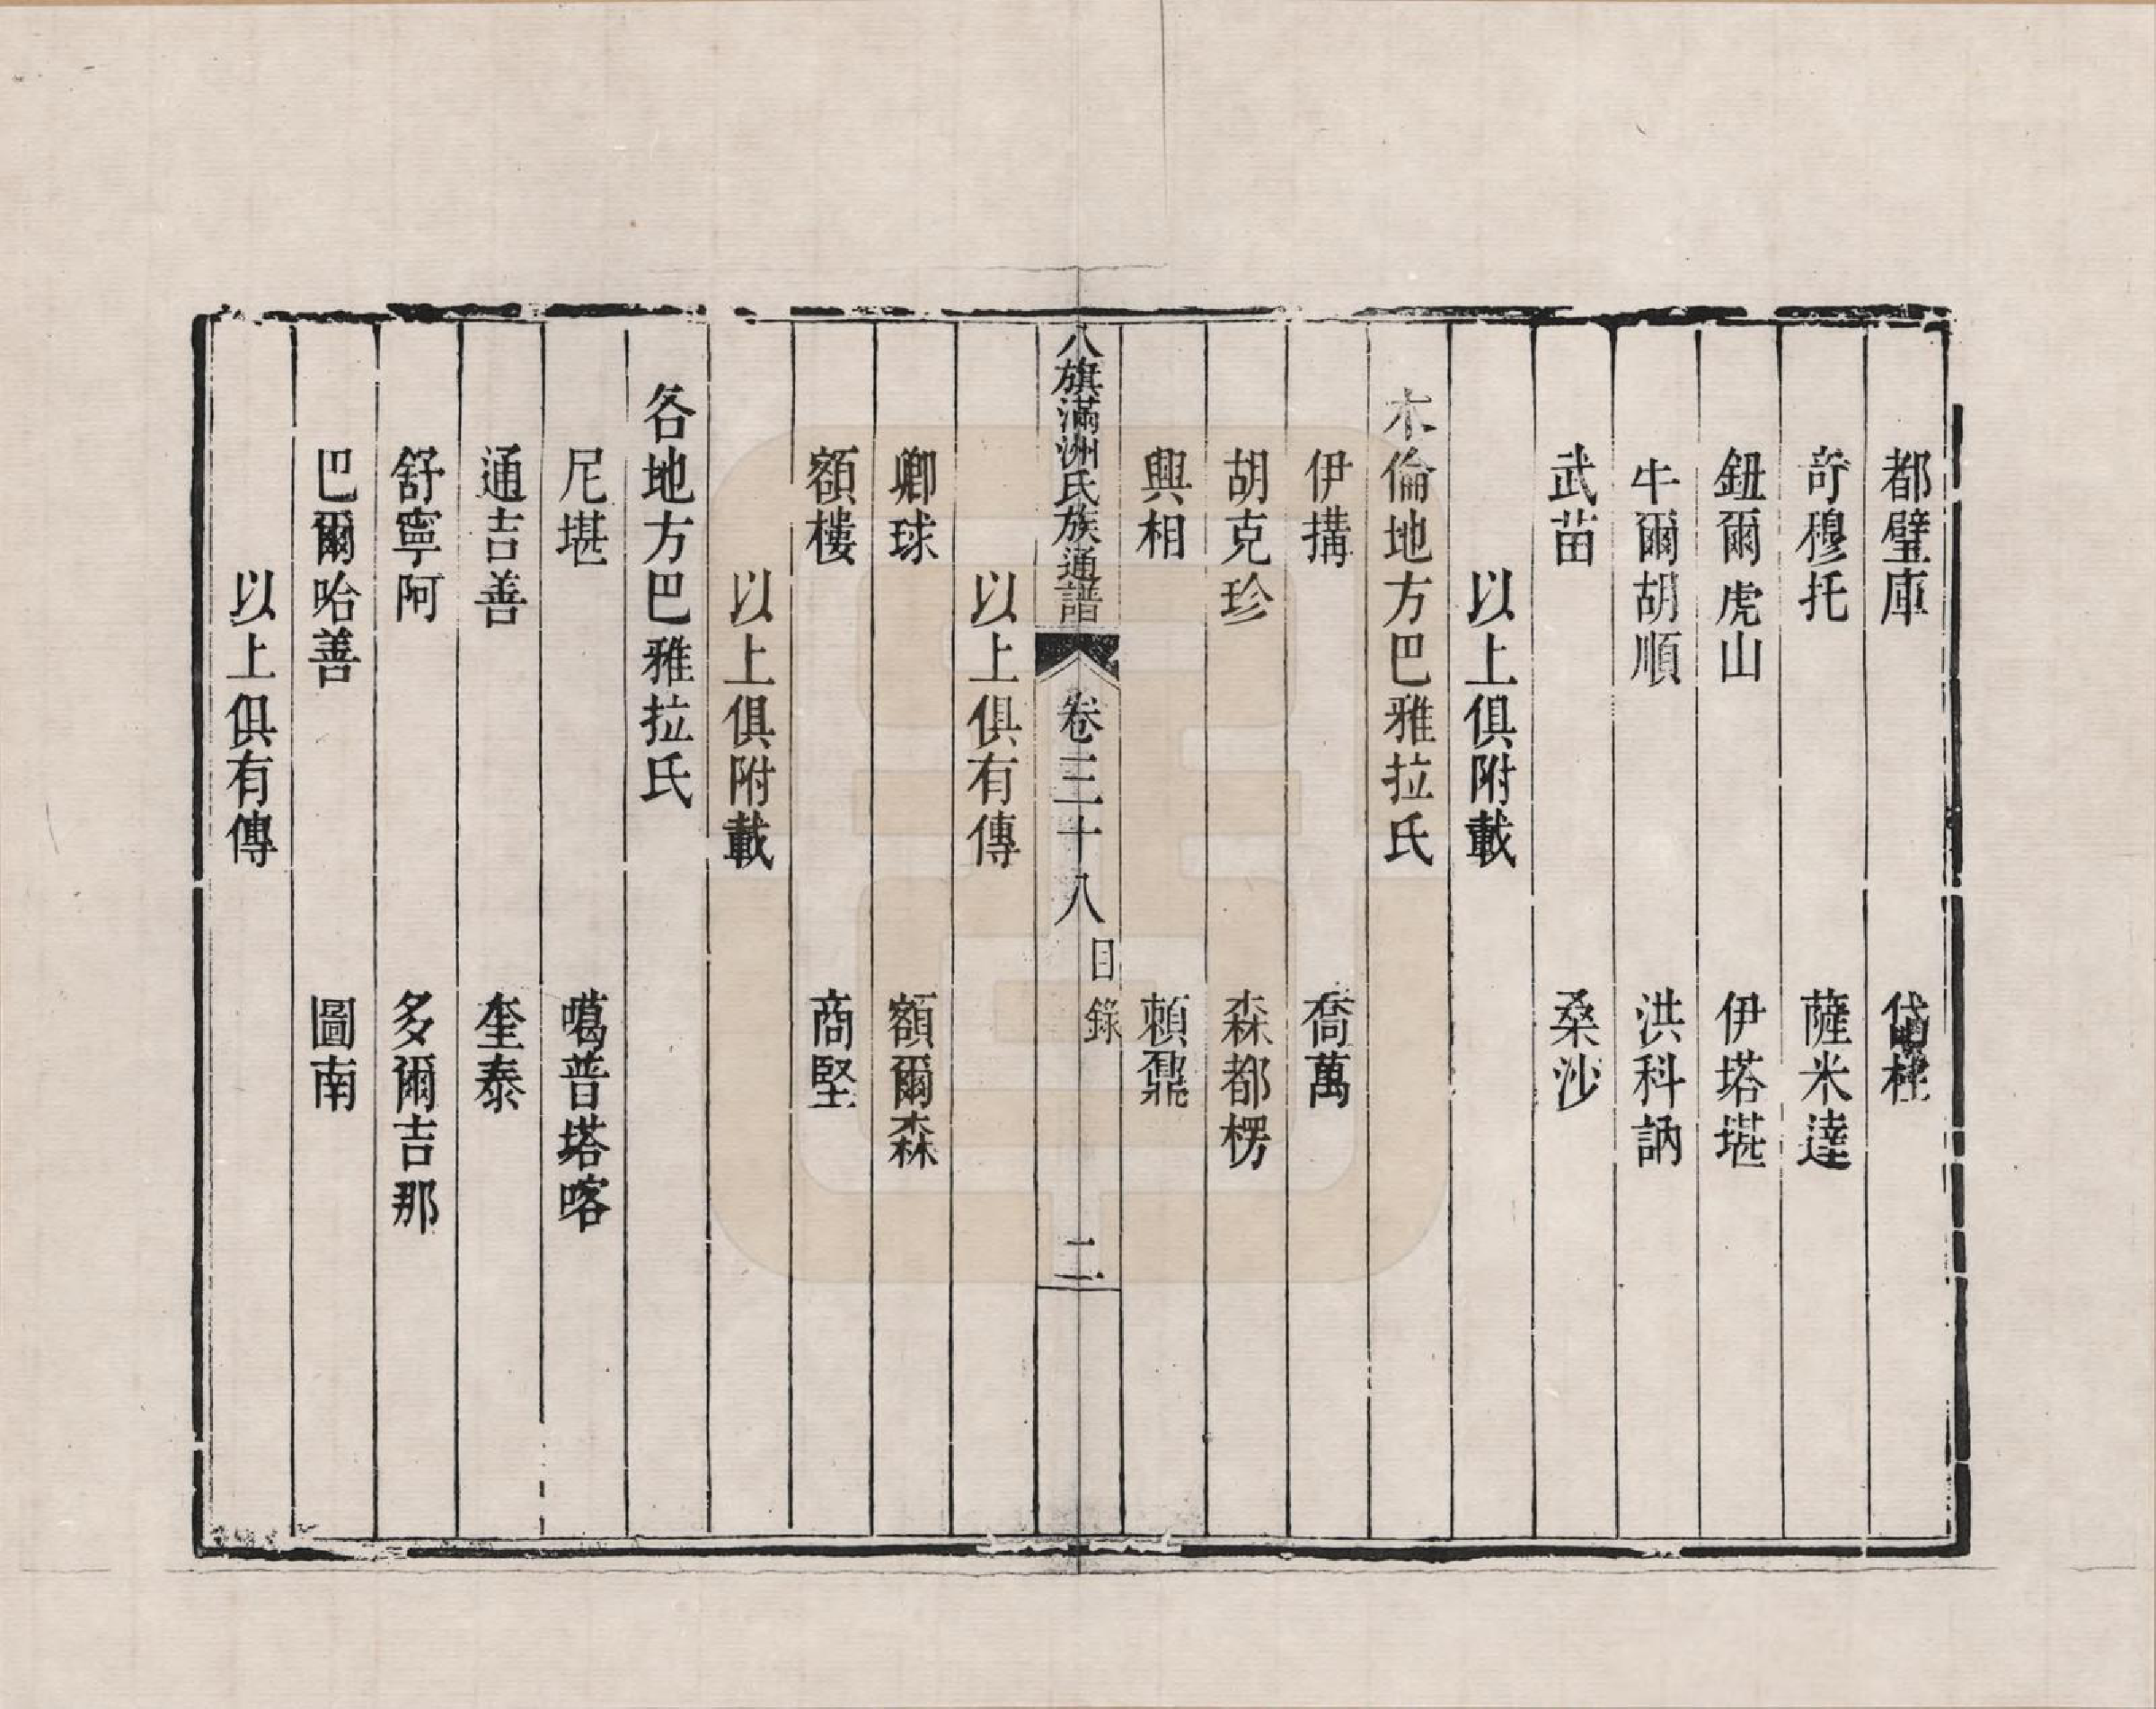 都璧庫　桂
竒穆托　薩米達
鈕爾虎山　伊塔堪
牛爾胡順　洪科訥
武苗　桑沙
以上俱附載
木倫地方巴雅拉氏
伊搆　喬萬
胡克珍　森都楞
興相　賴鼐
八旗滿洲氏族通譜　卷三十八　目錄　二
以上俱有傳
卿球　額爾森
額樓　商堅
以上俱附載
各地方巴雅拉氏
尼堪　噶普塔喀
通吉善　奎泰
舒寧阿　多爾吉那
巴爾哈善　圖南
以上俱有傳